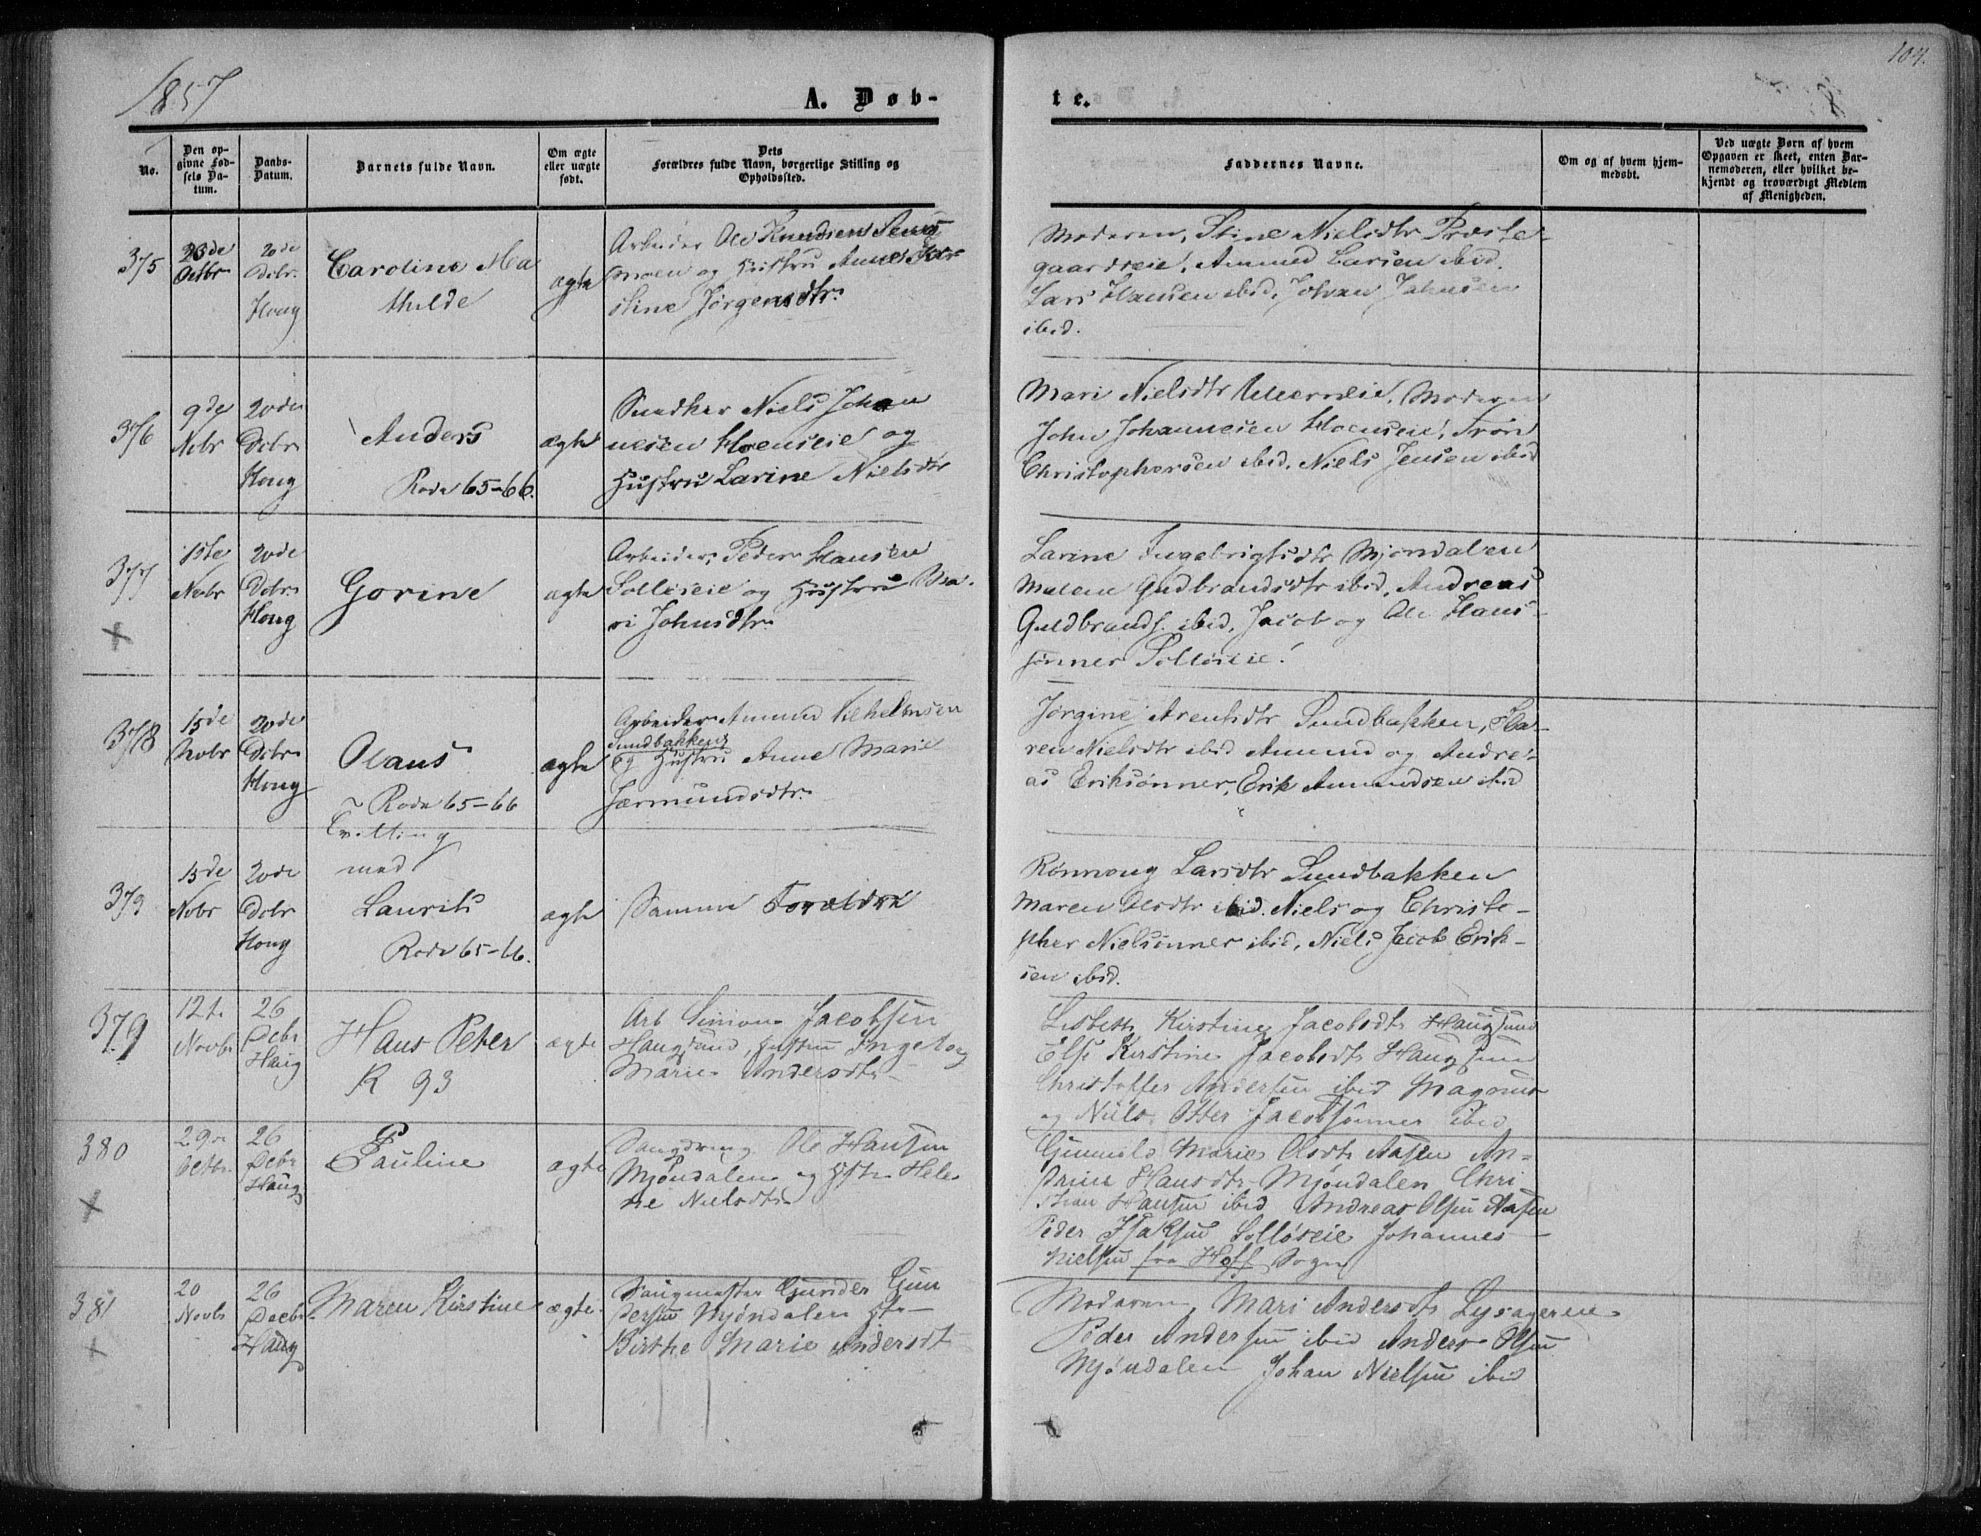 1857
104.
A. Døb-
te.
No.
Den op-
givne Fød-
sels Da-
tum.
Daabs-
Datum.
Barnets fulde Navn.
Om ægte
eller uægte
født.
Dets
Forældres fulde Navn, borgerlige Stilling og
Opholdssted.
Faddernes Navne.
Om og af hvem hjem-
medøbt.
Ved uægte Børn af hvem
Opgaven er skeet, enten Bar-
nemoderen, eller hvilket be-
kjendt og troværdigt Medlem
af Menigheden.
375
23de
Octbr
20de
Dcbr
Houg
Caroline Ma
thilde
ægte
Arbeider Ole Knudsen
moen og Hustru Anne
stine Jørgensdtr.
Moderen, Stine Nielsdtr Præste-
gaardseie, Ammund Larsen ibid.
Lars Hansen ibid, Johan Johnsen
ibid.
376
9de
Nobr
20de
Dcbr
Houg
Anders
Rode 65-66.
ægte
Smedker Niels Johan
nesen Hoenseie og
Hustru Larine Nielsdtr
Mari Nielsdtr Moderen
John Johannesen Hoenseie, Trøn
Christophersen ibid, Niels Jensen ibid
377
15de
Nobr
20de
Dcbr
Houg
Gorine
ægte
Arbeider, Peder Hansen
Solløseie og Hustru Ma-
ri Johnsdtr.
Larine Ingebrigtsdtr Mjøndalen
Malene Gudbrandsdtr ibid, Andreas
Guldbrands. ibid, Jacob og Ole Hans-
sønner Solløseie.
378
15de
Nobr
20de
Dcbr
Houg
Olaus
Rode 65-66
ægte
Arbeider Amund Vilhelmsen
Sundbakken
og Hustru Anne Marie
Gjermundsdtr.
Jørgine Arentsdtr Sundbakken, Ka-
ren Nielsdtr ibid Amund og Andre-
as Eriksønner, Erik Amundsen ibid
Tvilling
med
379
15de
Nobr
20de
Dcbr
Houg
Laurits
Rode 65-66.
ægte
Samme Forældre
Rønnoug Larsdtr Sundbakken
Maren Olsdtr ibid. Niels og Christo-
pher Nielsønner ibid, Niels Jacob Erik-
sen ibid.
379
12t.
Novbr
26
Decbr
Haug
Hans Peter
R 93
ægte
Arb Simon Jacobsen
Haugsund, Hustru Ingeborg
Marie Andersdtr
Lisbeth Kirstine Jacobsdtr Haugsund
Else Kirstine Jacobsdtr Haugsund
Christoffer Andersen ibid Magnus
og Niils Otter Jacobsønner ibid
380
29de
Octbr
26
Decbr
Haug
Pauline
ægte
Ole Hansen
Mjøndalen og Hstr Hele-
ne Nielsdtr
Gunnild Marie Olsdtr Aasen An-
drine Hansdtr Mjøndalen Chri-
stian Hansen ibid Andreas Olsen Aasen
Peder Isaksen Solløseie Johannes
Nielsen fra Hoff Sogn
381
20
Novbr
26
Decbr
Haug
Maren Kirstine
ægte
Saugmester Gunder Gun
dersen Mjøndalen Htr
Birthe Marie Andersdt
Moderen, Mari Andersdtr Lysageren
Peder Andersen ibid Anders Olsen
Mjøndalen Johan Nielsen ibid